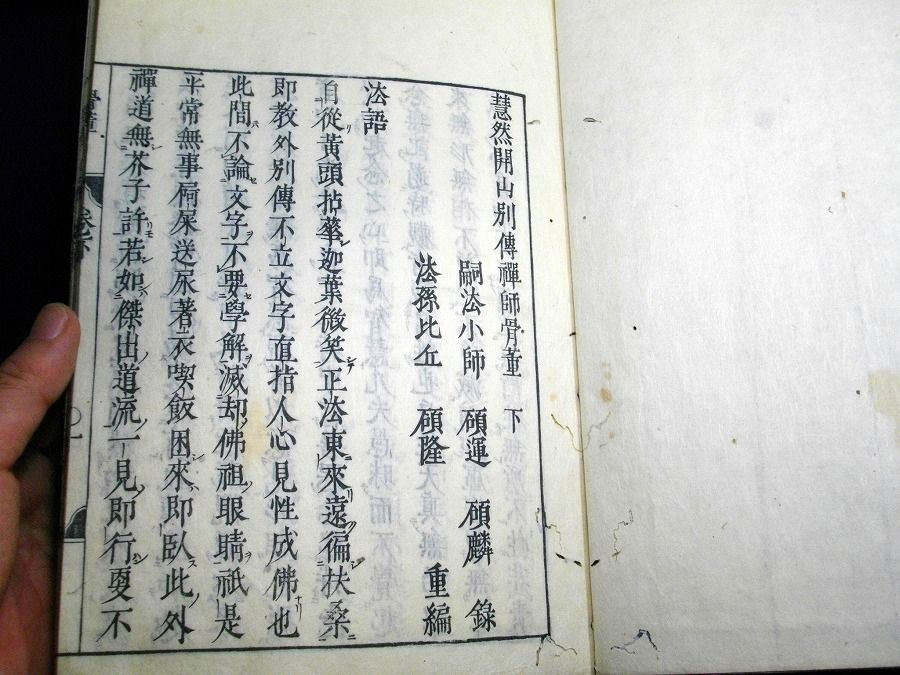 慧然開山別傳禪師骨董　下
嗣法小師　碩運　碩麟　錄
法孫比丘　碩隆　重編
法語
自從黃頭拈華迦葉微笑正法東來遠徧扶桑
即教外別傳不立文字直指人心見性成佛也
此間不論文字不要學解滅却佛祖眼睛祇是
平常無事屙屎送尿著衣喫飯困來即臥此外
禪道無芥子許若如傑出道流一見即行更不
骨董
卷下